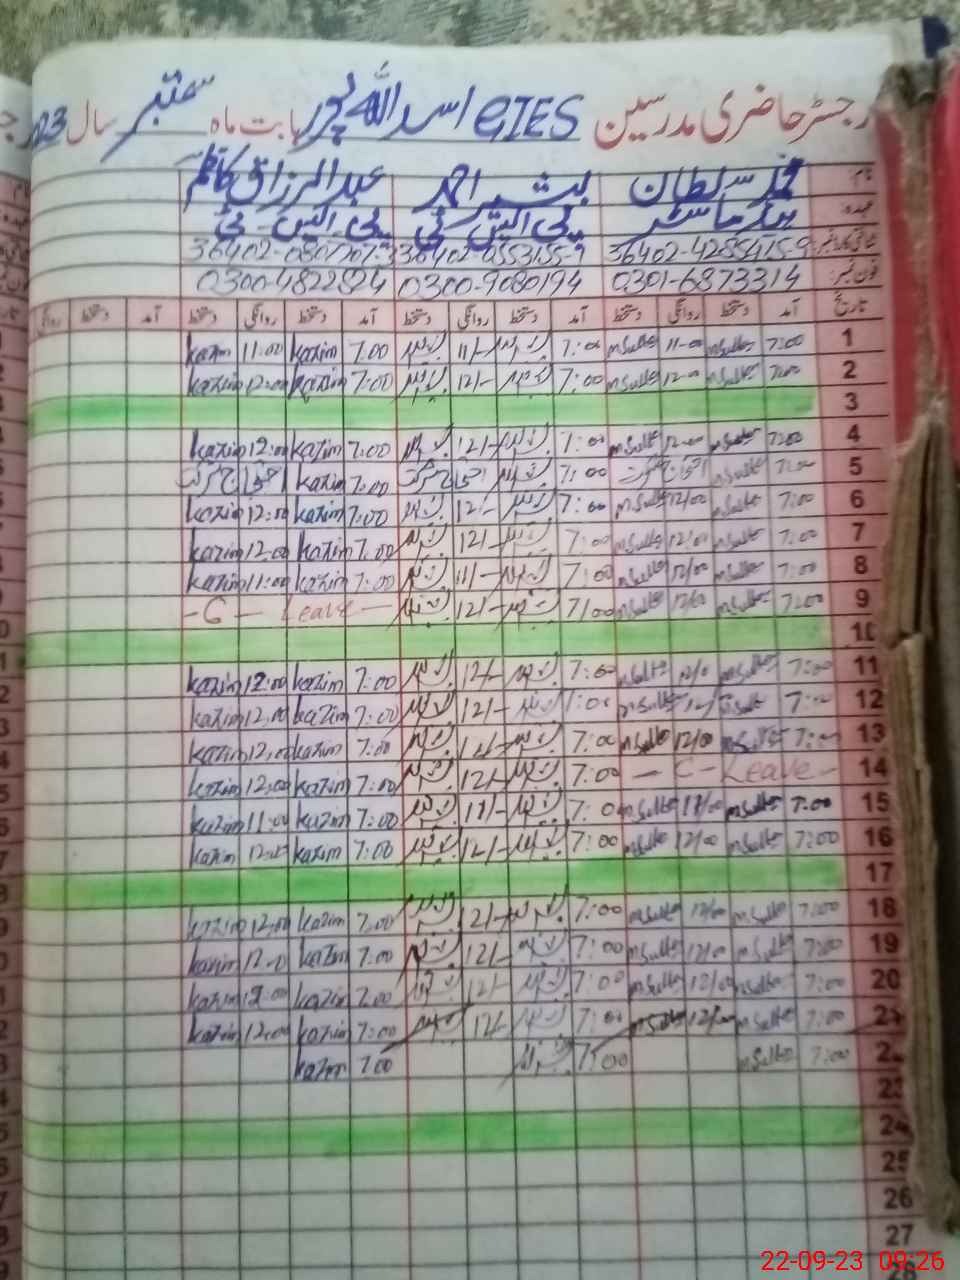 رجسٹر حاضری مدرسین GIES اسد اللہ پور بابت ماہ ستمبر سال 2023
نام: محمد سلطان بشیر احمد عبدالرزاق کاظم
عہدہ: ہیڈ ماسٹر پی ایس ٹی پی ایس ٹی
36402-4285415-9 36402-0553155-9
فون نمبر: 0301-6873314 0300-9080194 0300-4822824
تاریخ آمد دستخط روانگی دستخط آمد دستخط روانگی دستخط آمد دستخط روانگی دستخط آمد دستخط روانگی
1 7:00 m Sultan 11-00 m Sultan 7:00 بشیر 11/- بشیر 7.00 kazim 11:00 kazim
2 7:00 m Sultan 12-00 m Sultan 7:00 بشیر 12/- بشیر 7:00 kazim 12:00 kazim
3
4 7:00 m Sultan 12-00 m Sultan 7:00 بشیر 12/- بشیر 7:00 kazim 12:00 kazim
5 7:00 m Sultan 7:00 بشیر 7:00 kazim
6 7:00 m Sultan 12/00 m Sultan 7:00 بشیر 12/- بشیر 7:00 kazim 12:00 kazim
7 7:00 m Sultan 12/00 m Sultan 7:00 بشیر 12/- بشیر 7:00 kazim 12:00 kazim
8 7:00 m Sultan 12/00 m Sultan 7:00 بشیر 11/- بشیر 7:00 kazim 11:00 kazim
9 7:00 m Sultan 12/00 m Sultan 7/00 بشیر 12/- بشیر — C — Leave —
10
11 7:00 m Sultan 12/0 m Sultan 7:00 بشیر 12/- بشیر 7:00 kazim 12:00 kazim
12 7:00 m Sultan 12/ m Sultan 7:00 بشیر 12/- بشیر 7:00 kazim 12,00 kazim
13 7:00 m Sultan 12/00 m Sultan 7:00 بشیر 12/- بشیر 7:00 kazim 12,00 kazim
14 — C — Leave — 7:00 بشیر 12/- بشیر 7:00 kazim 12,00 kazim
15 7:00 m Sultan 11/00 m Sultan 7:00 بشیر 11/- بشیر 7:00 kazim 11:00 kazim
16 7:00 m Sultan 12/00 m Sultan 7:00 بشیر 12/- بشیر 7:00 kazim kazim
17
18 7:00 m Sultan 12/00 m Sultan 7:00 بشیر 12/- بشیر 7:00 kazim 12:00 kazim
19 7:00 m Sultan 12/00 m Sultan 7:00 بشیر 12/- بشیر 7:00 kazim kazim
20 7:00 m Sultan 12/00 m Sultan 7:00 بشیر 12/- بشیر 7:00 kazim 12:00 kazim
21 7:00 m Sultan 12/00 m Sultan 7:00 بشیر 12/- بشیر 7:00 kazim 12:00 kazim
22 7:00 m Sultan 7:00 بشیر 7:00 kazim
23
24
25
26
27
22-09-23 09:26